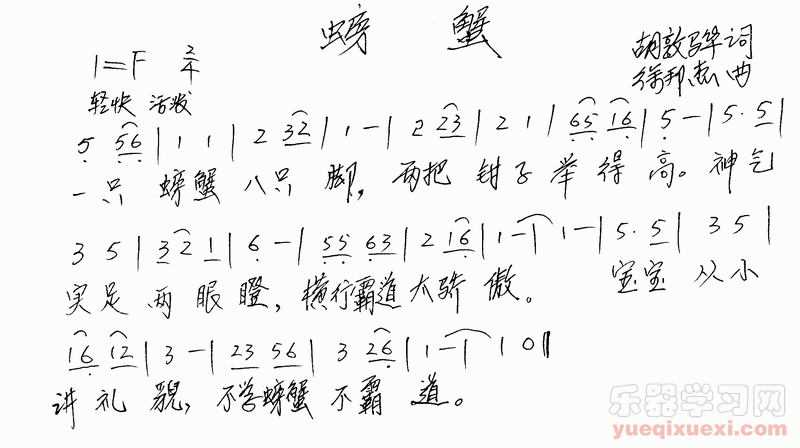 螃蟹
1=F 2/4
胡敦骅词
曲
轻快 活泼
5 56 | 1 1 | 2 32 | 1 - | 2 23 | 2 1 | 65 16 | 5 - | 5. 5 |
一只 螃蟹 八只 脚，两把 钳子 举 得 高。神气
3 5 | 32 1 | 6 - | 55 63 | 2 16 | 1 - | 1 - | 5. 5 | 3 5 |
实足 两 眼 瞪，横行霸道太骄 傲。 宝宝 从小
16 12 | 3 - | 23 56 | 3 26 | 1 - | 1 0 ‖
讲 礼 貌，不学螃蟹 不 霸 道。
乐器学习网
yueqixuexi.com